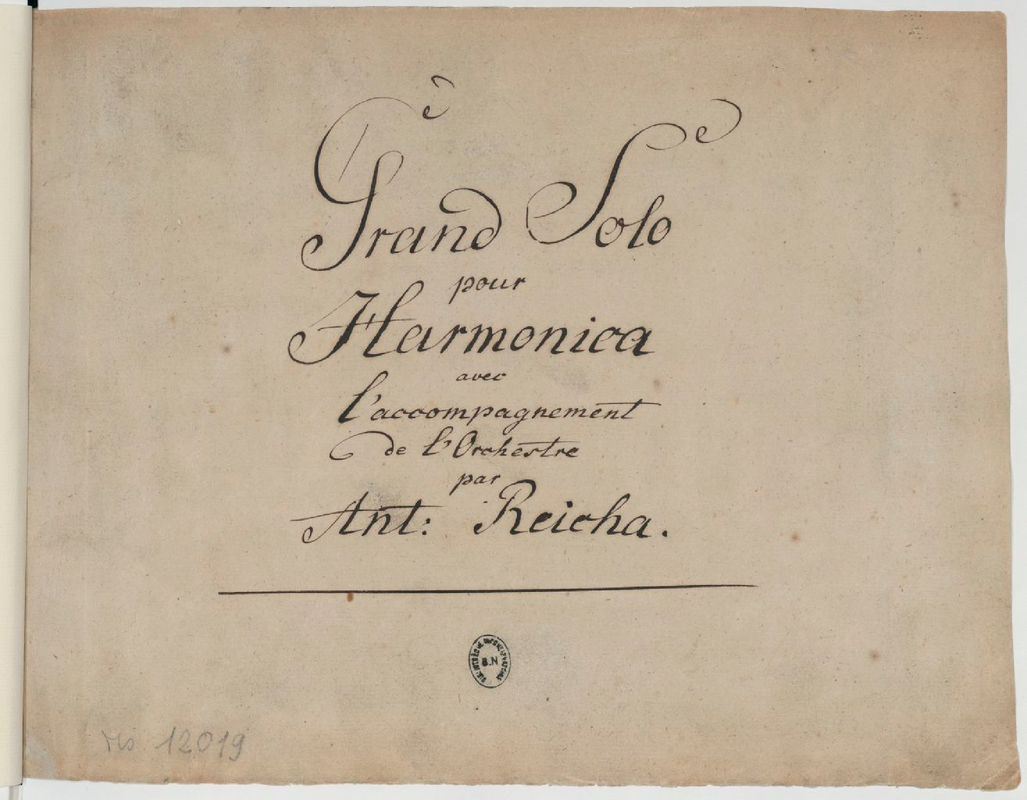 Grand Solo
pour
Harmonica
avec
l'accompagnement
de l'Orchestre
par
Ant: Reicha.
B.N
Ms 12019